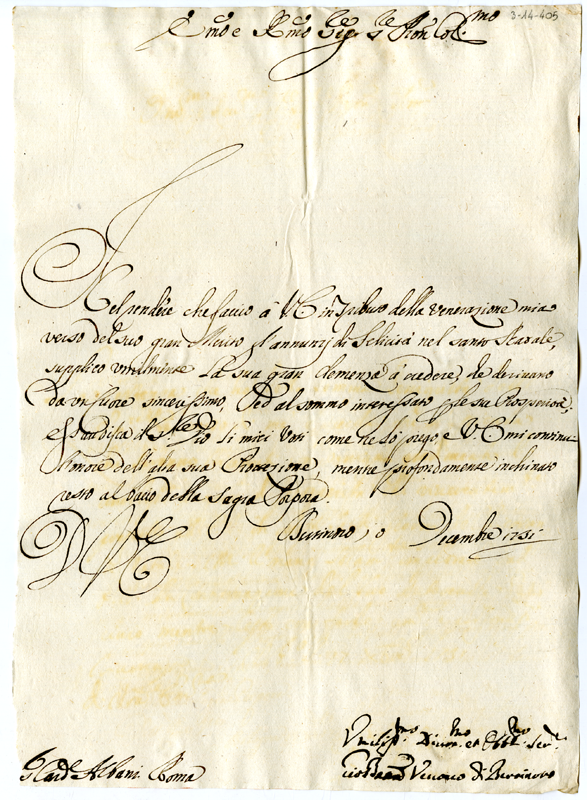 3-14-405
Emo e Rmo Sigr Sr Pron Colmo
Nel rendere che faccio à VE in Tributo della Venerazione mia
verso del suo gran Merito gl'annunzj di Felicità nel santo Natale,
supplico umilmente La sua gran Clemenza à credere, che derivano
da un Cuore sincerissimo, ed al sommo interessato per le sue Prosperità;
esaudisca il Sigre Dio Li miei Voti come ne lo prego e VE mi continui
l'onore dell'alta sua Protezione, mentre profondamente inchinato
resto al bacio della Sagra Porpora.
DVE
Bertinoro, o Decembre 1731
Umilissmo Divmo et Obblmo Serv
Vescovo di Bertinoro
Card Albani Roma